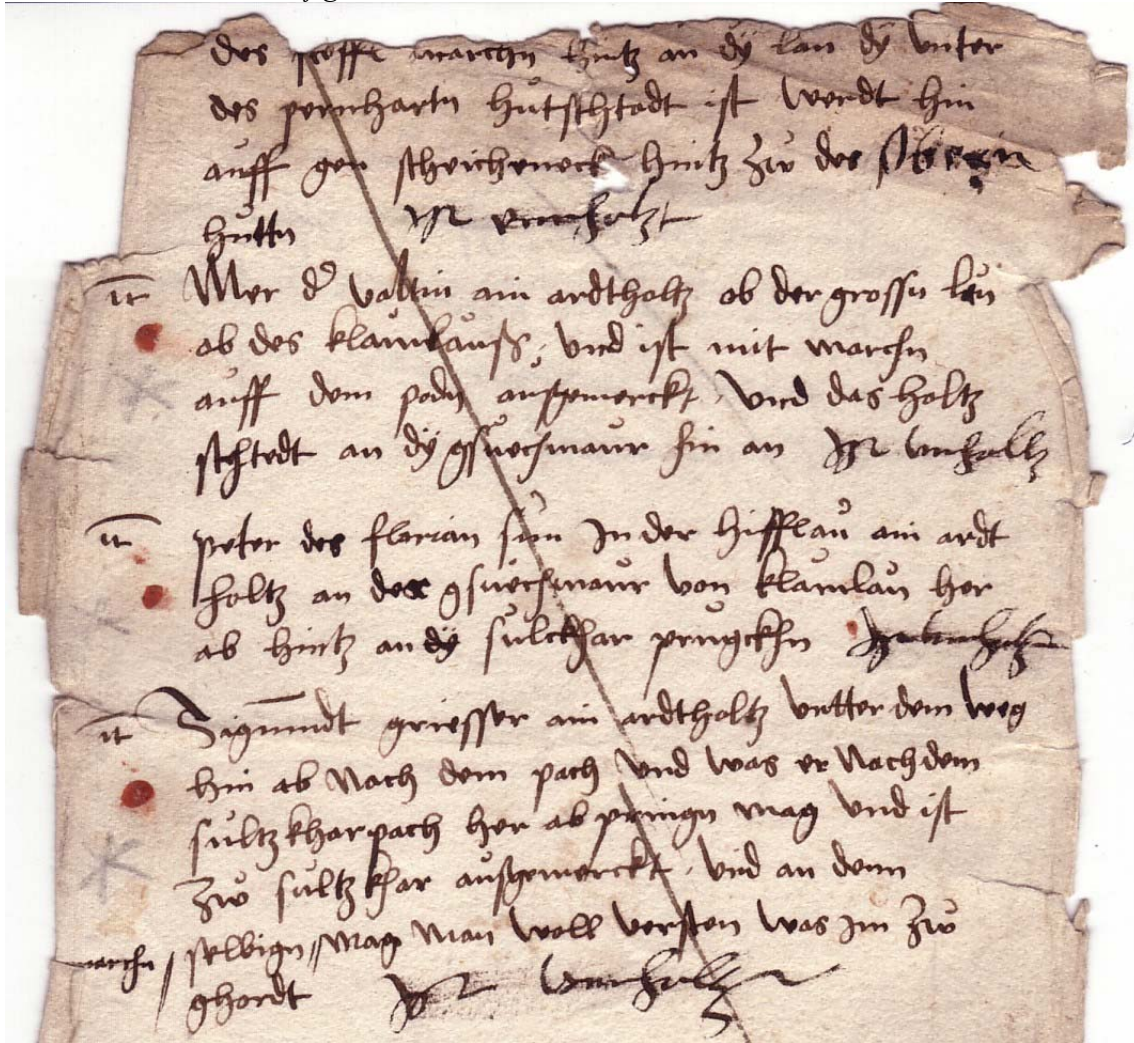 des marchn hintz an dÿ lan dÿ unter
des pernhartn hütschtadt ist werdt hin
auff gen scheicheneck hintz zw des
hüttn Ist verholtzt
it Mer d' valtin ain ardtholtz ob der grossn leü
ob des klamlauß, und ist mit marchn
auff dem podn außgemerckt, und das holtz
schtedt an dÿ gsüechmaur hin an Ist verholtz
it peter des florian sün In der hifflaü ain ardt
holtz an der gsüechmaur von klamlaü her
ab hintz an dÿ sulckhar prugckhn
it Sigmundt griesser ain ardtholtz untter dem weg
hin ab Nach dem pach und was er Nach dem
sültzkharpach her ab pringn mag und ist
zw sultzkhar außgemerckt, und an denn
selbign marchn mag Man woll versten was Im zw
ghordt Ist verholtz